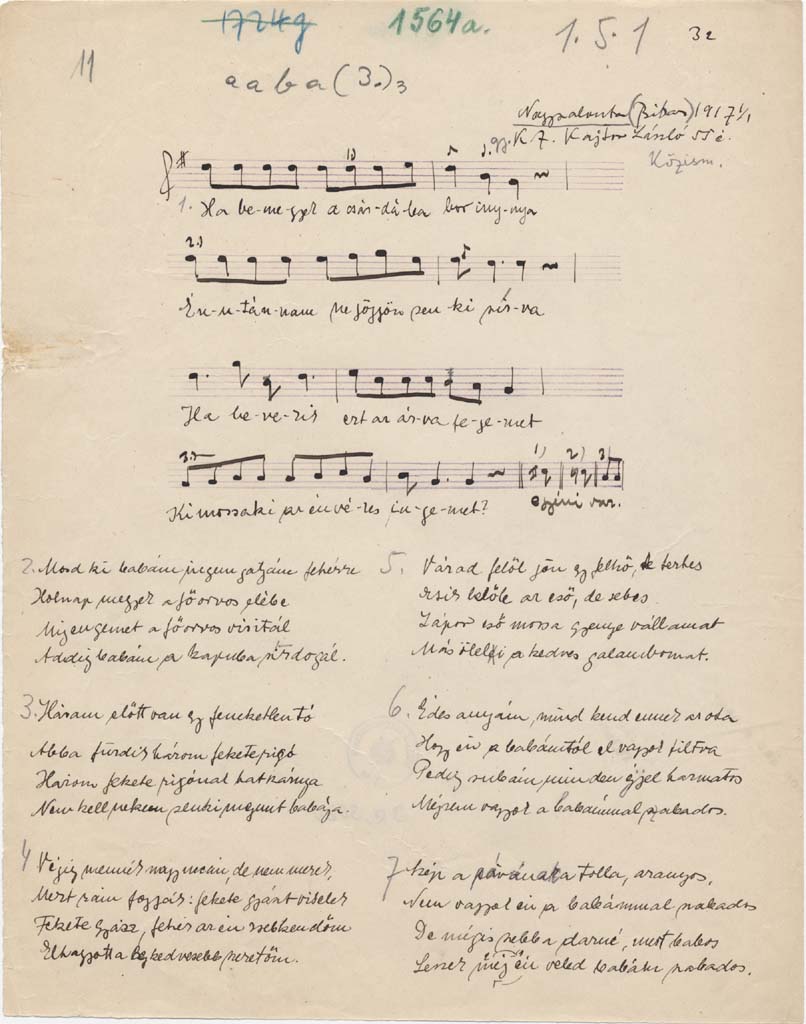 1724g 1564a. 1. 5. 1 32
11
a a b a (3.) 3
Nagyszalonta (Bihar) 1917 1/1
gy. K. Z. Kajtor László 55 é.
Közism.
1)
1. Ha be-me-gyek a csár-dá-ba bor inny-nya
2.)
Én-u-tán-nam ne jöjjön sen-ki sír-va
Ha be-ve-rik ezt az ár-va fe-je-met
3.) 1) 2) 3)
Ki mossa ki az én vé-res in-ge-met? egyéni var.
2. Mosd ki babám ingem gatyám fehérre
Holnap megyek a főorvos elébe
Míg engemet a főorvos visitál
Addig babám a kapuba sírdogál.
3. Házam előtt van egy feneketlen tó
Abba fürdik három fekete rigó
Három fekete rigónak hat szárnya
Nem kell nekem senki megunt babája.
4 Végig mennék nagy uccán, de nem merek,
Mert rám fogják: fekete gyászt viselek
Fekete gyász, fehér az én zsebkendőm
Elhagyott a legkedvesebb szeretőm.
5. Várad felől jön egy felhő, de terhes
Esik belőle az eső, de sebes
Zápor eső mossa gyenge vállamat
Más öleli a kedves galambomat.
6. Édes anyám, mind kend ennek az oka
Hogy én a babámtól el vagyok tiltva
Pedig subám minden éjjel harmatos
Mégsem vagyok a babámmal szabados.
7 Szép a pávának a tolla, aranyos,
Nem vagyok én a babámmal szabados
De mégis szebb a darué, mert babos
Leszek még én veled babám szabados.